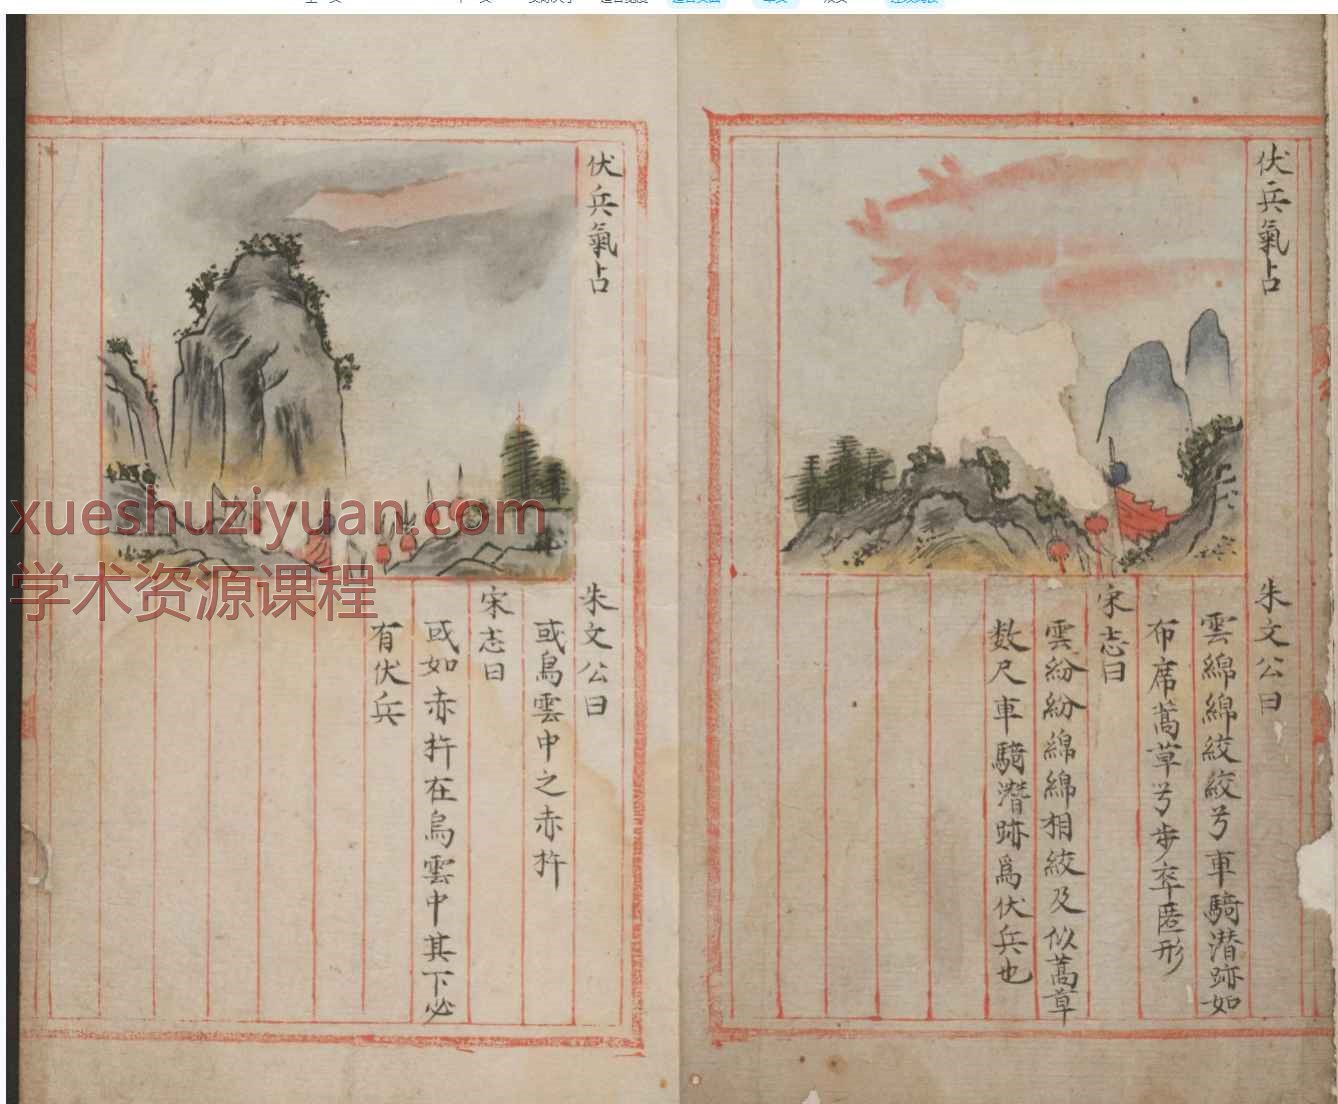 伏兵氣占
朱文公曰
雲綿綿絞絞兮車騎潛跡如
布席蒿草兮步卒匿形
宋志曰
雲紛紛綿綿相絞及似蒿草
数尺車騎潛跡爲伏兵也
伏兵氣占
朱文公曰
或烏雲中之赤杵
宋志曰
或如赤杵在烏雲中其下必
有伏兵
xueshuziyuan.com
学术资源课程